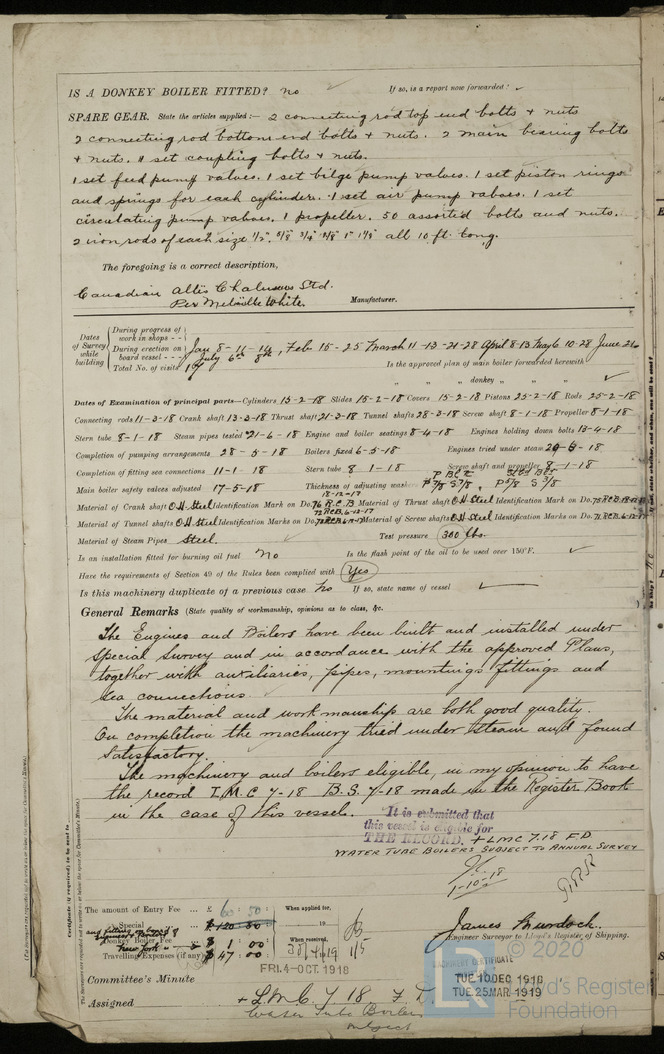 IS A DONKEY BOILER FITTED? No If so, is a report now forwarded?
SPARE GEAR. State the articles supplied:— 2 connecting rod top end bolts & nuts
2 connecting rod bottom end bolts & nuts. 2 main bearing bolts
& nuts. 1 set coupling bolts & nuts.
1 set feed pump valves. 1 set bilge pump valves. 1 set piston rings
and springs for each cylinder. 1 set air pump valves. 1 set
circulating pump valves. 1 propeller. 50 assorted bolts and nuts.
2 iron rods of each size 1/2" 5/8 3/4 7/8 1" 1 1/8 all 10 ft. long.
The foregoing is a correct description,
Canadian Allis Chalmers Ltd.
Per Manufacturer.
Dates of Survey while building
During progress of work in shops - - Jan 8-11-14, Feb 15-25 March 11-13-21-28 April 8-13 May 6 10-28 June
During erection on board vessel - - - July 6th 8th
Total No. of visits Is the approved plan of main boiler forwarded herewith
" " donkey " " "
Dates of Examination of principal parts—Cylinders 15-2-18 Slides 15-2-18 Covers 15-2-18 Pistons 25-2-18 Rods 25-2-18
Connecting rods 11-3-18 Crank shaft 13-3-18 Thrust shaft 21-3-18 Tunnel shafts 28-3-18 Screw shaft 8-1-18 Propeller 8-1-18
Stern tube 8-1-18 Steam pipes tested 21-6-18 Engine and boiler seatings 8-4-18 Engines holding down bolts 13-4-18
Completion of pumping arrangements 28-5-18 Boilers fixed 6-5-18 Engines tried under steam
Completion of fitting sea connections 11-1-18 Stern tube 8-1-18 Screw shaft and propeller 8-1-18
Main boiler safety valves adjusted 17-5-18 Thickness of adjusting washers P 5/8 S 7/8
Material of Crank shaft O.H. Steel Identification Mark on Do. Material of Thrust shaft O.H. Steel Identification Mark on Do.
Material of Tunnel shafts O.H. Steel Identification Marks on Do. Material of Screw shafts O.H. Steel Identification Marks on Do.
Material of Steam Pipes Steel. Test pressure 300 lbs.
Is an installation fitted for burning oil fuel No Is the flash point of the oil to be used over 150°F.
Have the requirements of Section 49 of the Rules been complied with Yes
Is this machinery duplicate of a previous case No If so, state name of vessel
General Remarks (State quality of workmanship, opinions as to class, &c.
The Engines and Boilers have been built and installed under
Special Survey and in accordance with the approved Plans,
together with auxiliaries, pipes, mountings fittings and
sea connections.
The material and workmanship are both good quality.
On completion the machinery tried under steam and found
satisfactory.
The machinery and boilers eligible, in my opinion to have
the record L.M.C 7-18 B.S. 7-18 made in the Register Book
in the case of this vessel.
It is submitted that
this vessel is eligible for
THE RECORD. + LMC 7.18 F.D.
WATER TUBE BOILERS SUBJECT TO ANNUAL SURVEY
1-10-18
The amount of Entry Fee ... £ 60 : 50 : When applied for,
Special £ 120 : 50 : 19
Donkey Boiler Fee £ 1 : 00 : When received,
Travelling Expenses (if any) £ 47 : 00 :
James Murdoch.
Engineer Surveyor to Lloyd's Register of Shipping.
FRI. 4-OCT. 1918
Committee's Minute
TUE. 10 DEC. 1918
TUE. 25 MAR. 1919
Assigned + LMC 7 18 F.D.
Water Tube Boilers
subject
© 2020
Lloyd's Register
Foundation